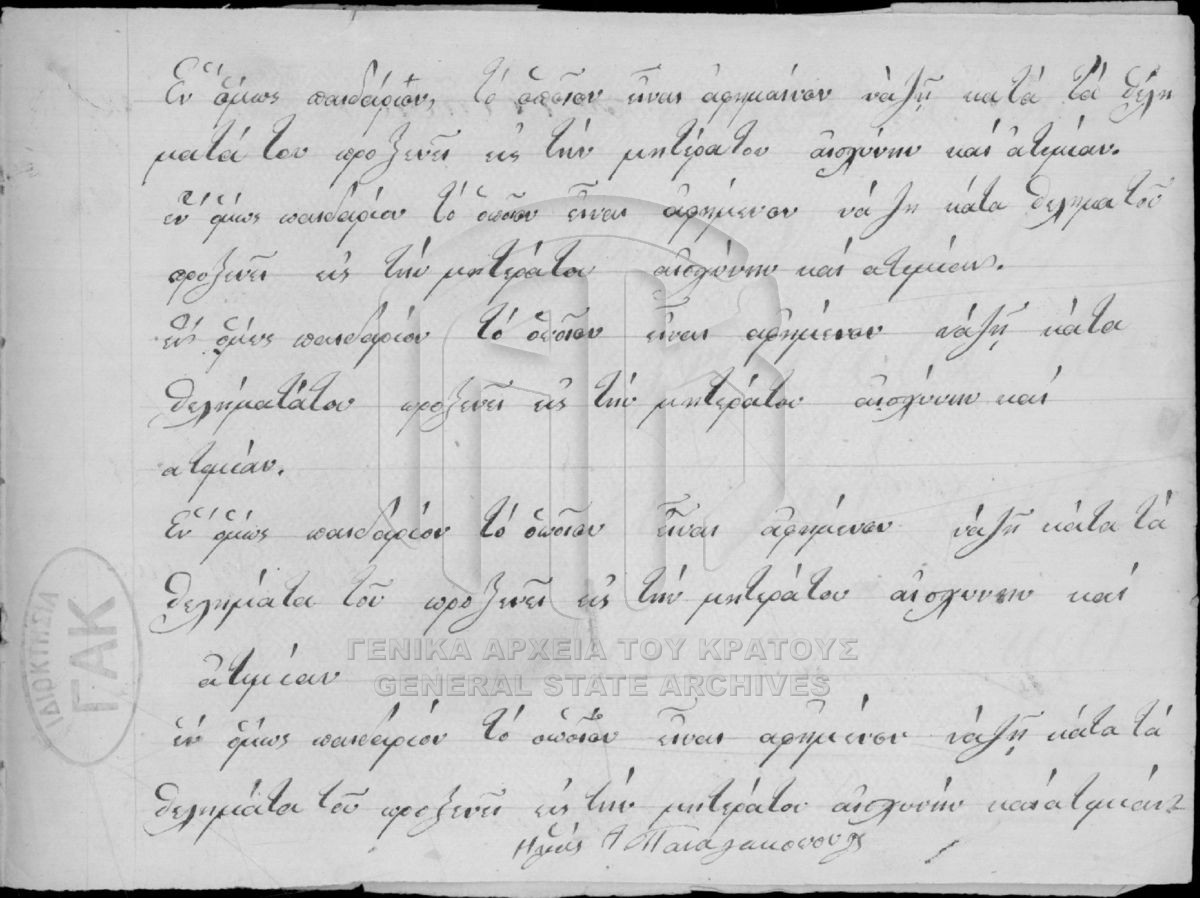 Ἐν ὅμως παιδάριον, τὸ ὁποῖον εἶναι ἀφημαίνον νάζῃ κατά τά θελη
ματά του προξενεῖ εἰς τὴν μητέρατου αἰσχύνην καί ἀτιμίαν.
ἐν ὅμως παιδάριον τὸ ὁποῖον εἶναι ἀφημένον νά ζη κάτα θεληματοῦ
προξενεῖ εἰς τὴν μητέρατου αἰσχύνην καί ατιμίαν.
παιδάριον τὸ ὁποῖον εἶναι ἀφημένον νάζῃ κάτα
θελήματάτου προξενεῖ εἰς τὴν μητέρατου αἰσχύνην καί
ατιμίαν.
Ἐν ὅμως παιδάριον τὸ ὁποῖον εἶναι ἀφημένον νάζῃ κάτα τά
θελημάτα τοῦ προξενεῖ εἰς τὴν μητέρατου αἰσχυνην καί
ἀτιμίαν
ἐν ὅμως παιδάριον τό ὁποῖον εἶναι αφημένον νάζῃ κάτα τά
θελημάτα τοῦ προξενεῖ εἰς τὴν μητέρατου αἰσχυνήν καίατιμίαν
ΓΕΝΙΚΑ ΑΡΧΕΙΑ ΤΟΥ ΚΡΑΤΟΥΣ
GENERAL STATE ARCHIVES
ΙΔΙΟΚΤΗΣΙΑ
ΓΑΚ